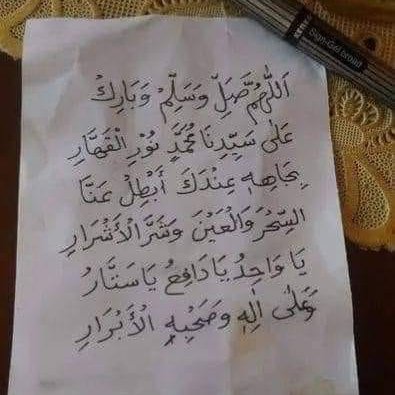 اَللّٰهُمَّ صَلِّ وَسَلِّمْ وَبَارِكْ
عَلٰى سَيِّدِنَا مُحَمَّدٍ نُوْرِ الْقَهَّارِ
بِجَاهِهٖ عِنْدَكَ أَبْطِلْ عَنَّا
السِّحْرَ وَالْعَيْنَ وَشَرَّ الْأَشْرَارِ
يَا وَاحِدُ يَا دَافِعُ يَا سَتَّارُ
وَعَلٰى اٰلِهٖ وَصَحْبِهٖ الْأَبْرَارِ